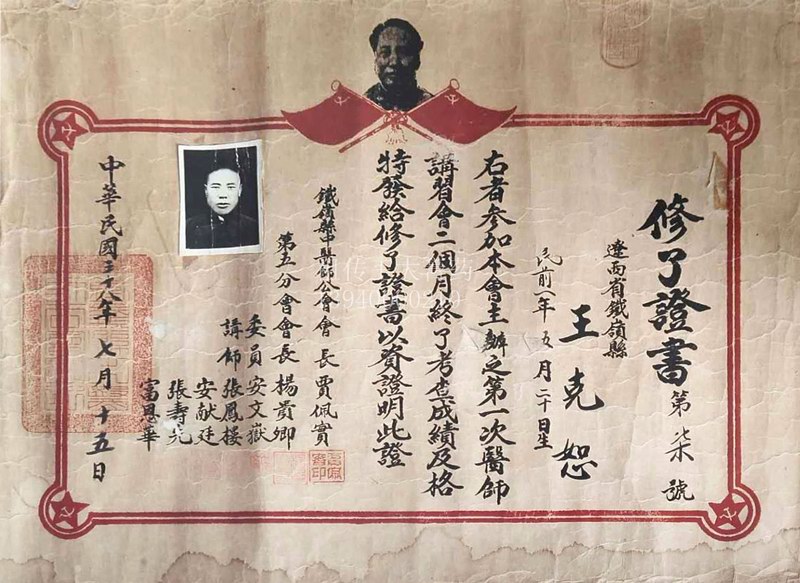 修了證書
第柒號
遼西省鐵嶺縣
王克恕
民前八年五月二十日生
右者參加本會主辦之第一次醫師
講習會二個月終了考查成績及格
特發給修了證書以資證明此證
鐵嶺縣中醫師公會會長賈佩實
第五分會會長楊貴卿
委員安文嶽
講師張鳳樓
安献廷
張壽先
富恩華
中華民國三十八年七月十五日